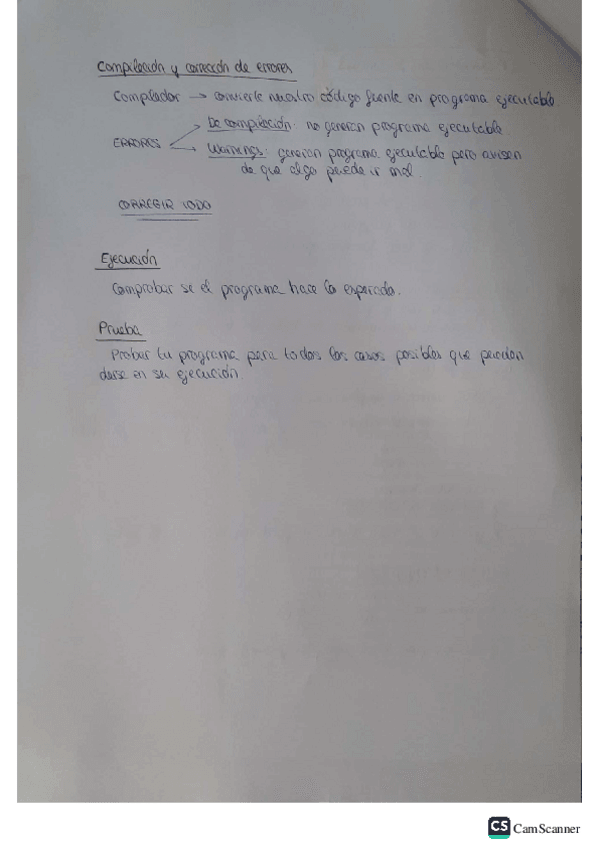 Compilación y corrección de errores
Compilador → convierte nuestro código fuente en programa ejecutable.
De compilación: no generan programa ejecutable
ERRORES
Warnings: generan programa ejecutable pero avisan
de que algo puede ir mal.
CORREGIR TODO
Ejecución
Comprobar se el programa hace lo esperado.
Prueba
Probar tu programa para todos los casos posibles que puedan
darse en su ejecución.
CS CamScanner